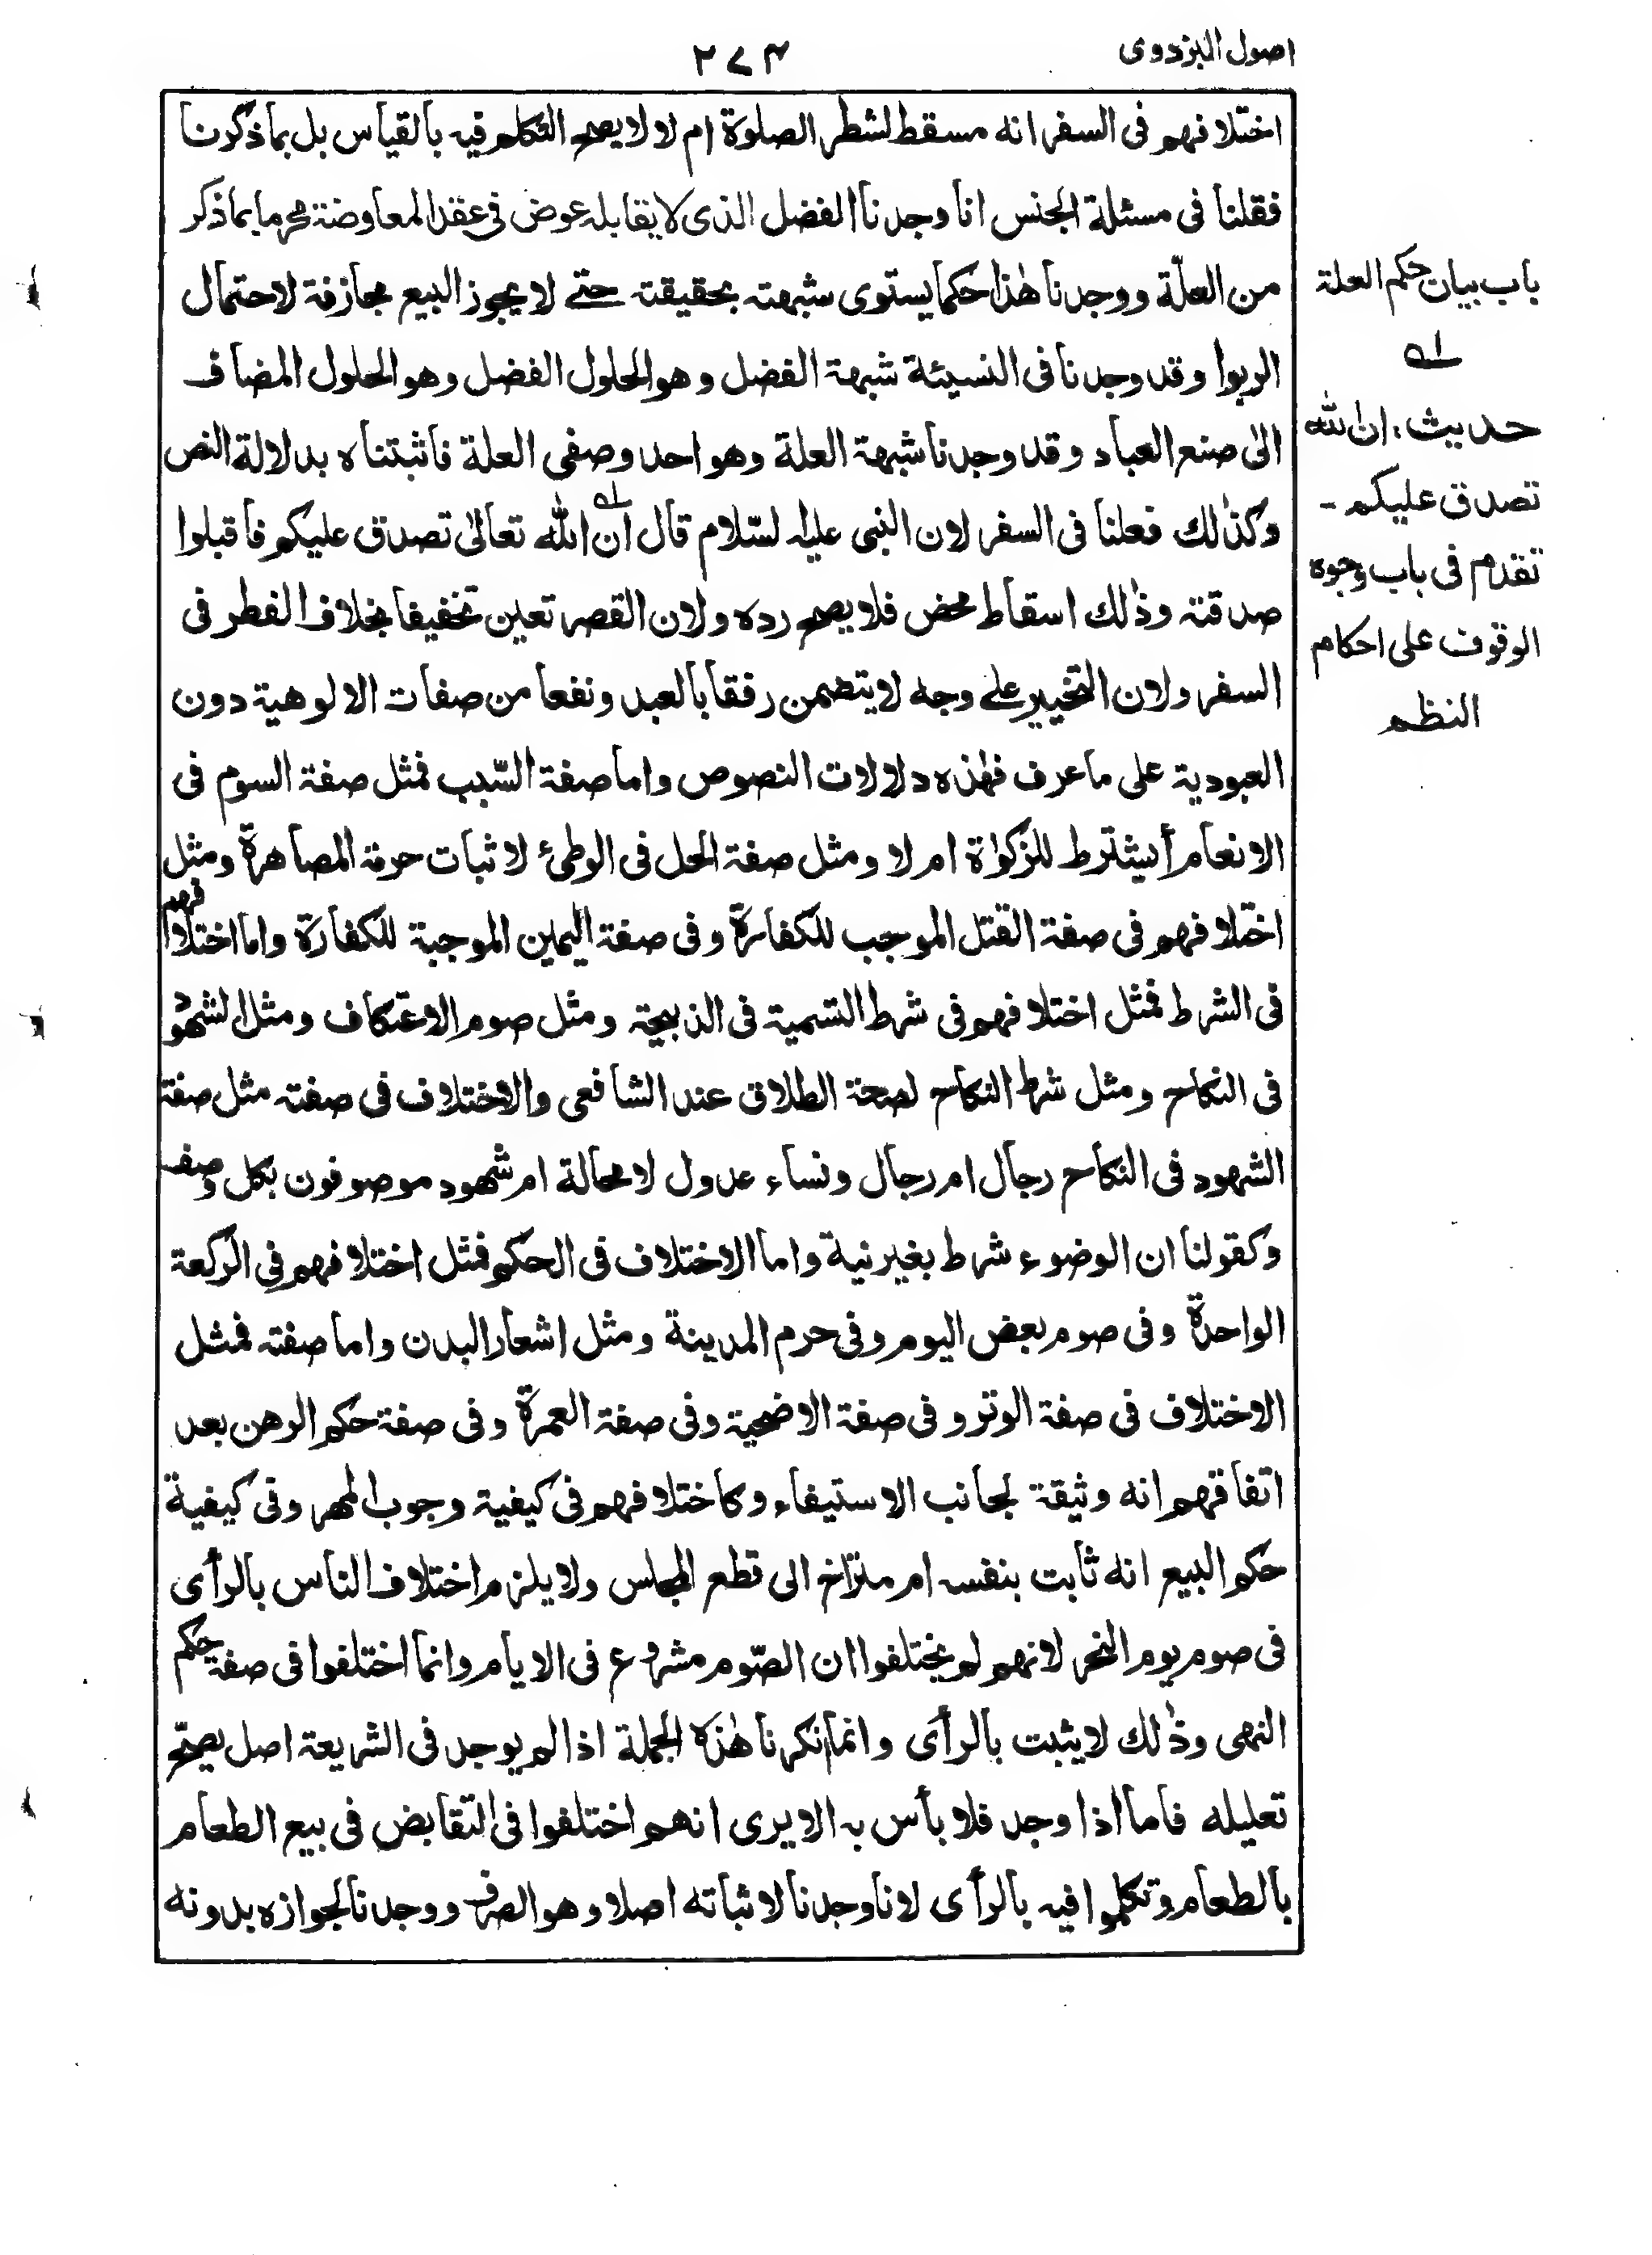 اصول البزدوى
٢٧٤
اختلافهم فى السفر انه مسقط لشطر الصلوة ام لا لا يصح التكلم فيه بالقياس بل بما ذكرنا
فقلنا فى مسئلة الجنس انا وجدنا الفضل الذى لا يقابله عوض فى عقد المعاوضة محرما بما ذكر
من العلّة ووجدنا هٰذا حكما يستوى شبهته بحقيقته حتے لا يجوز البيع مجازفة لاحتمال
الربوا وقد وجدنا فى النسيئة شبهة الفضل وهو الحلول الفضل وهو الحلول المضاف
الىٰ صنع العباد وقد وجدنا شبهة العلة وهو احد وصفى العلة فاثبتناه بدلالة النص
وكذٰلك فعلنا فى السفر لان النبى عليه السّلام قال ان الله تعالىٰ تصدق عليكم فاقبلوا
صدقته وذٰلك اسقاط محض فلا يصح رده ولان القصر تعين تخفيفا بخلاف الفطر فى
السفر ولان التخيير علے وجه لا يتضمن رفقا بالعبد ونفعا من صفات الالوهية دون
العبودية على ما عرف فهٰذه دلالات النصوص واما صفة السّبب فمثل صفة السوم فى
الانعام أيشترط للزكوٰة ام لا ومثل صفة الحل فى الوطئ لاثبات حرمة المصاهرة ومثل
اختلافهم فى صفة القتل الموجب للكفارة وفى صفة اليمين الموجبة للكفارة واما اختلافهم
فى الشرط فمثل اختلافهم فى شرط التسمية فى الذبيحة ومثل صوم الاعتكاف ومثل الشهود
فى النكاح ومثل شرط النكاح لصحة الطلاق عند الشافعى والاختلاف فى صفته مثل صفة
الشهود فى النكاح رجال ام رجال ونساء عدول لا محالة ام شهود موصوفون بكل وصف
وكقولنا ان الوضوء شرط بغير نية واما الاختلاف فى الحكم فمثل اختلافهم فى الركعة
الواحدة وفى صوم بعض اليوم وفى حرم المدينة ومثل اشعار البدن واما صفته فمثل
الاختلاف فى صفة الوتر و فى صفة الاضحية وفى صفة العمرة وفى صفة حكم الرهن بعد
اتفاقهم انه وثيقة لجانب الاستيفاء وكاختلافهم فى كيفية وجوب المهر وفى كيفية
حكم البيع انه ثابت بنفسه ام متراخ الى قطع المجلس ولا يلزم اختلاف الناس بالرأى
فى صوم يوم النحر لانهم لم يختلفوا ان الصّوم مشروع فى الايام وانما اختلفوا فى صفة حكم
النهى وذٰلك لا يثبت بالرأى وانما انكرنا هٰذه الجملة اذا لم يوجد فى الشريعة اصل يصحّ
تعليله فاما اذا وجد فلا بأس به الا يرى انهم اختلفوا فى التقابض فى بيع الطعام
بالطعام وتكلموا فيه بالرأى لانا وجدنا لاثباته اصلا وهو الصرف ووجدنا لجوازه بدونه
باب بيان حكم العلة
لہ
حديث: ان الله
تصدق عليكم -
تقدم فى باب وجوه
الوقوف على احكام
النظم